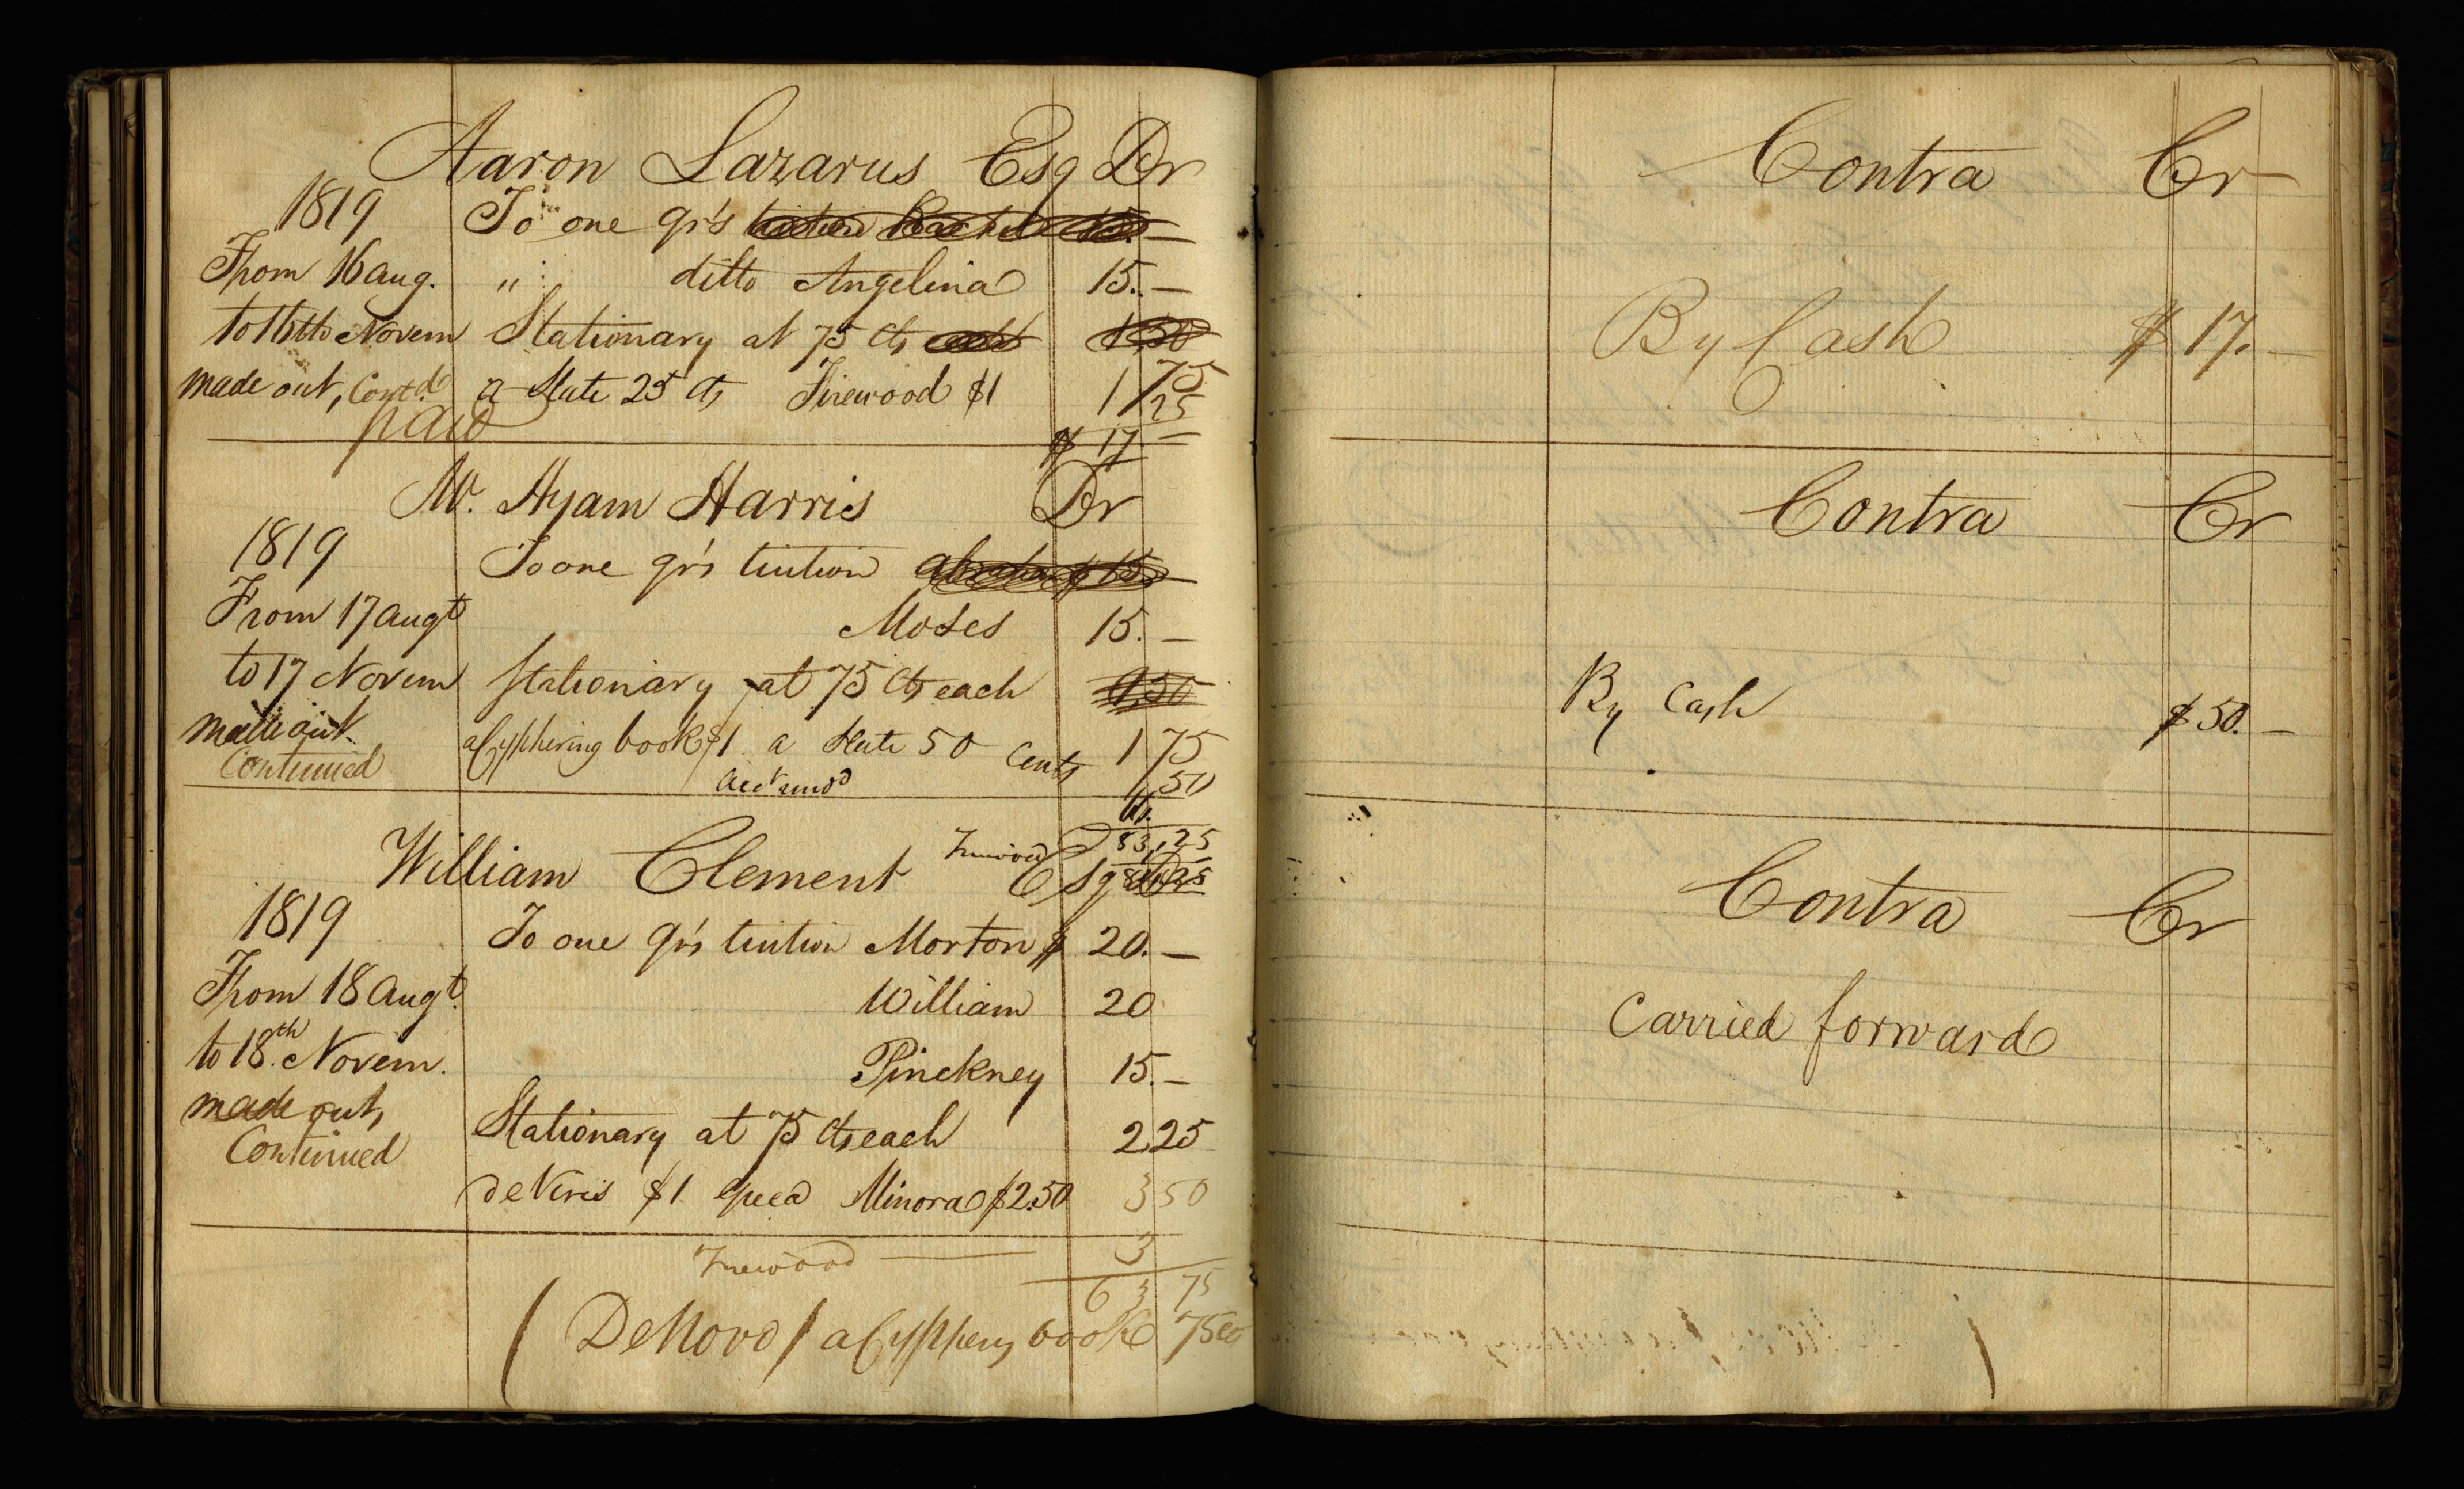 Aaron Lazarus Esq Dr
1819 To one qr's tuition Rachel 15. —
From 16 aug. " ditto Angelina 15. —
to 16tto Novem Stationary at 75 cts each 1,50
made out, Contd a Slate 25 cts Firewood $1 1 75
25
paid
$ 17 —
Mr. Hyam Harris Dr
1819 To one qr's tuition 15 —
From 17 augt Moses 15. —
to 17 Novem Stationary at 75 Cts each 1,50
made out a Cyphering book $1 a Slate 50 Cents 1 75
Continued 50
83,25
William Clement Esq Dr
Firewood
1819 To one qr's tuition Morton $ 20. —
From 18 augt. William 20
to 18th. Novem. Pinckney 15. —
made out, Stationary at 75 cts each 2,25
Continued
de Viris $1. Minora $2.50 3 50
Firewood — 3
63 75
( DeNovo / a Cyphery book 75
Contra Cr
By Cash $ 17. —
Contra Cr
By Cash $ 50. —
Contra Cr
Carried forward